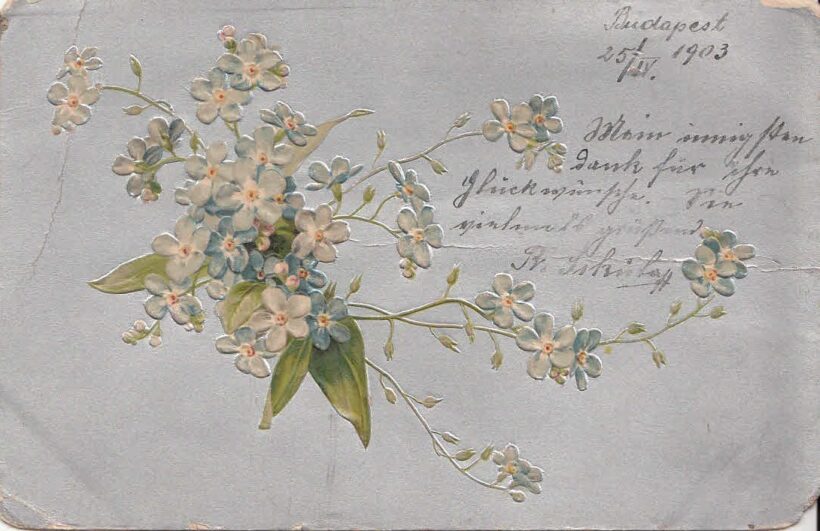 Budapest
25/IV. 1903
Mein innigsten
dank für ihre
Glückwünsche. Sie
vielmals grüßend